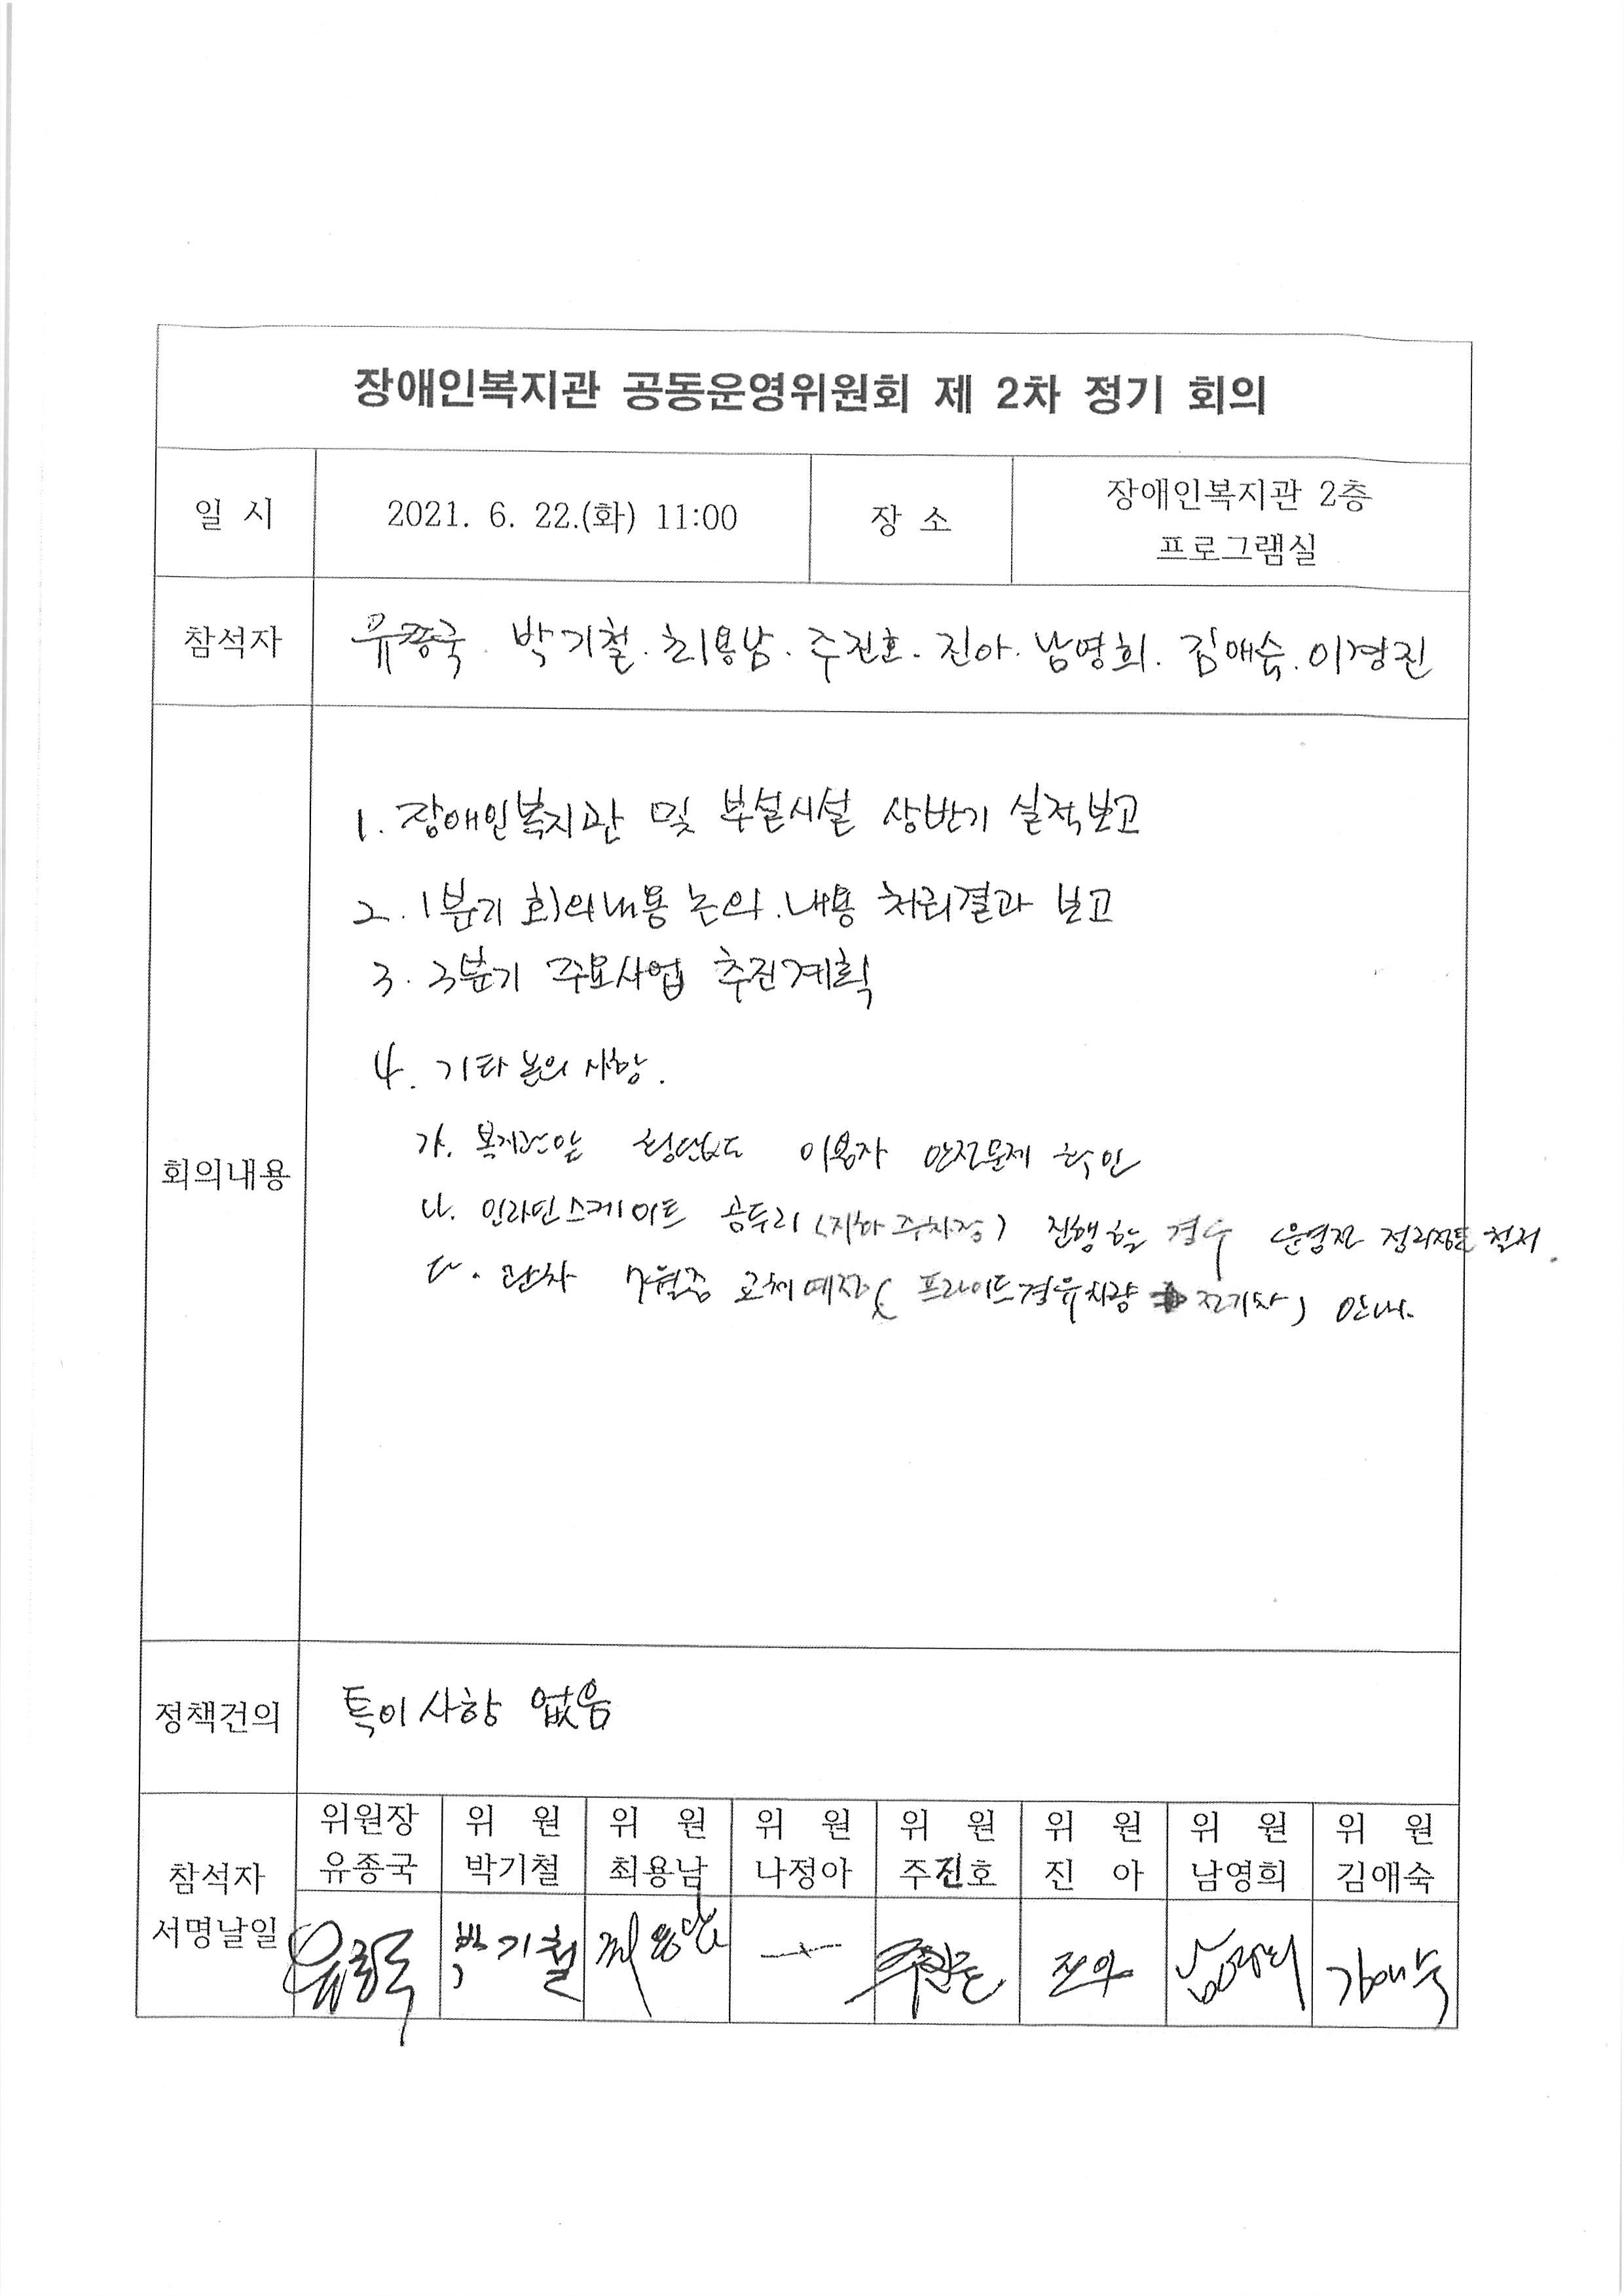 장애인복지관 공동운영위원회 제 2차 정기 회의
일 시
2021. 6. 22.(화) 11:00
장 소
장애인복지관 2층
프로그램실
참석자
유종국. 박기철. 최용남. 주진호. 진아. 남영희. 김애숙. 이경진
회의내용
1. 장애인복지관 및 부설시설 상반기 실적보고
2. 1분기 회의내용 논의.내용 처리결과 보고
3. 3분기 주요사업 추진계획
4. 기타논의 사항.
가. 복지관앞 횡단보도 이용자 안전문제 확인
나. 인라인스케이트 (지하주차장) 진행할 경우 운영전 철저.
다. 관차 7월중 교체예정( 프라이드경유차량 → 전기차) 안내.
정책건의
특이사항 없음
참석자
서명날일
위원장 위 원 위 원 위 원 위 원 위 원 위 원 위 원
유종국 박기철 최용남 나정아 주진호 진 아 남영희 김애숙
유종국 박기철 최용남 주진호 진아 남영희 김애숙